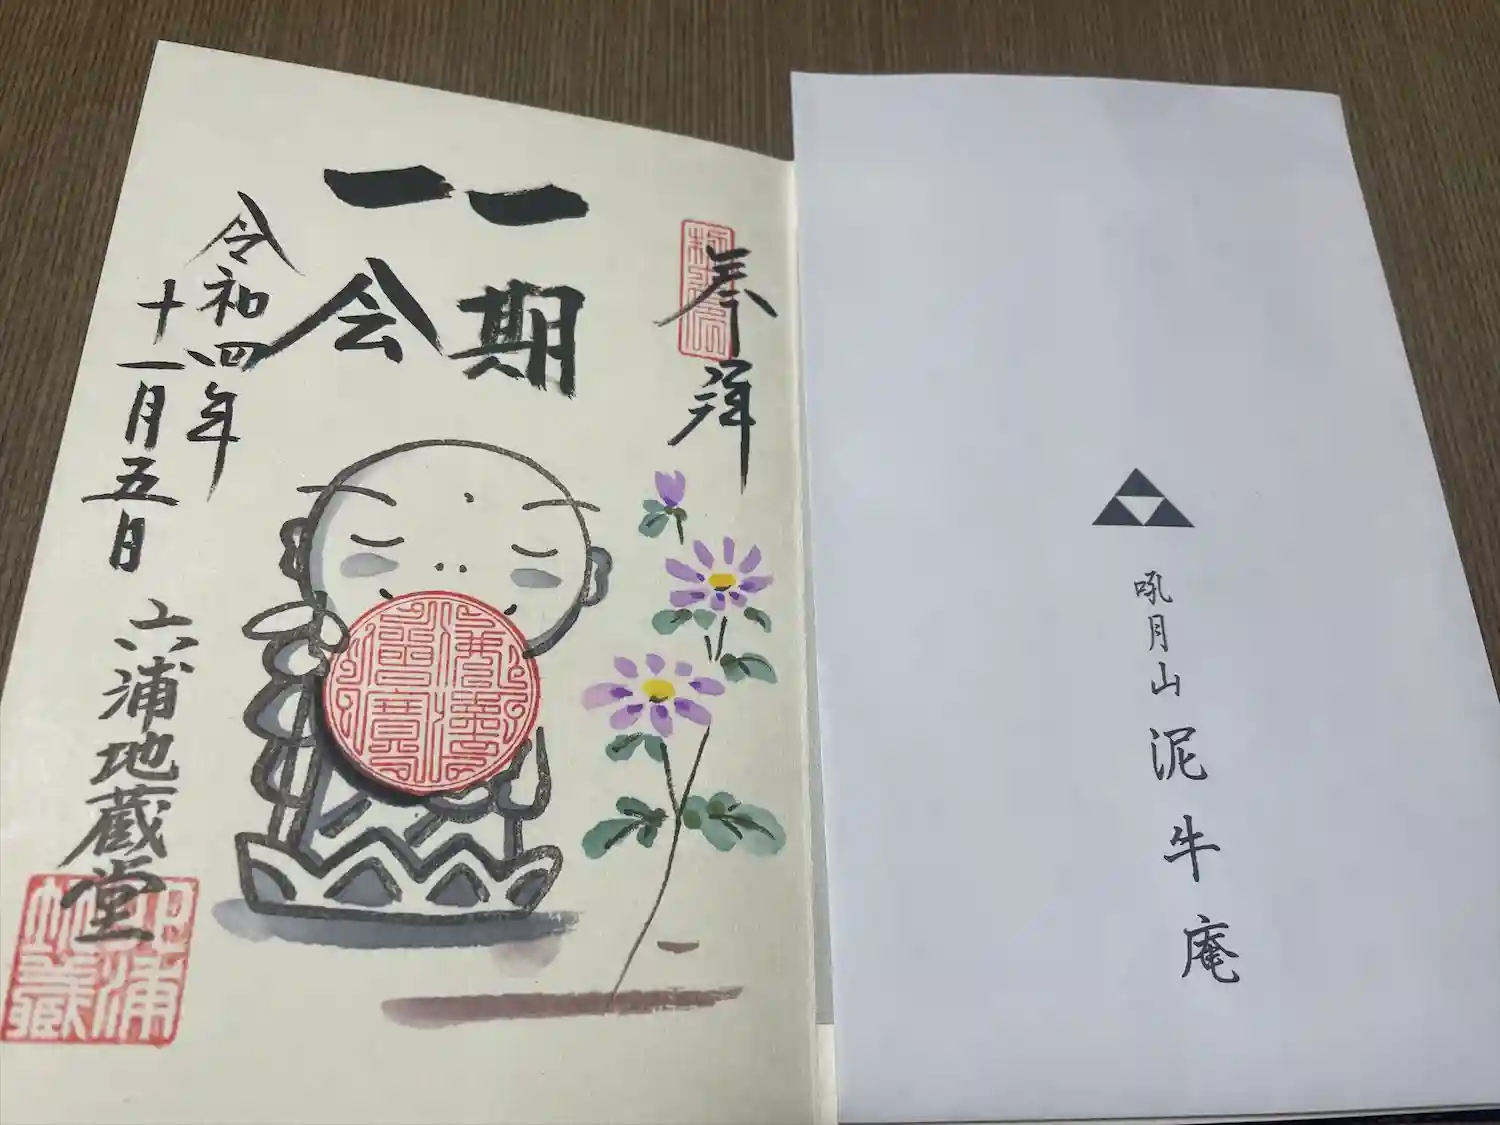 奉拝
一期
一会
令和四年
十一月五日
六浦地蔵堂
吼月山
泥牛庵